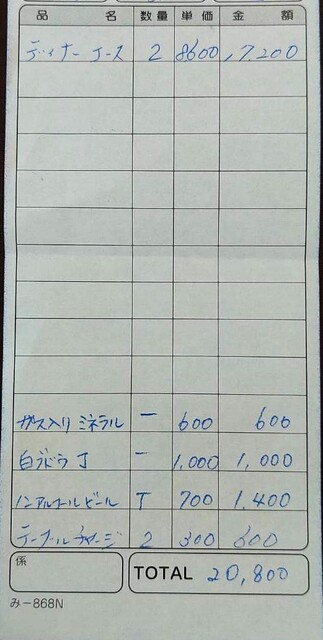 品名 数量 単価 金額
ディナーコース 2 8600 17,200
ガス入りミネラル 一 600 600
白ブドウJ 一 1,000 1,000
ノンアルコールビール T 700 1,400
テーブルチャージ 2 300 600
係 TOTAL 20,800
み-868N